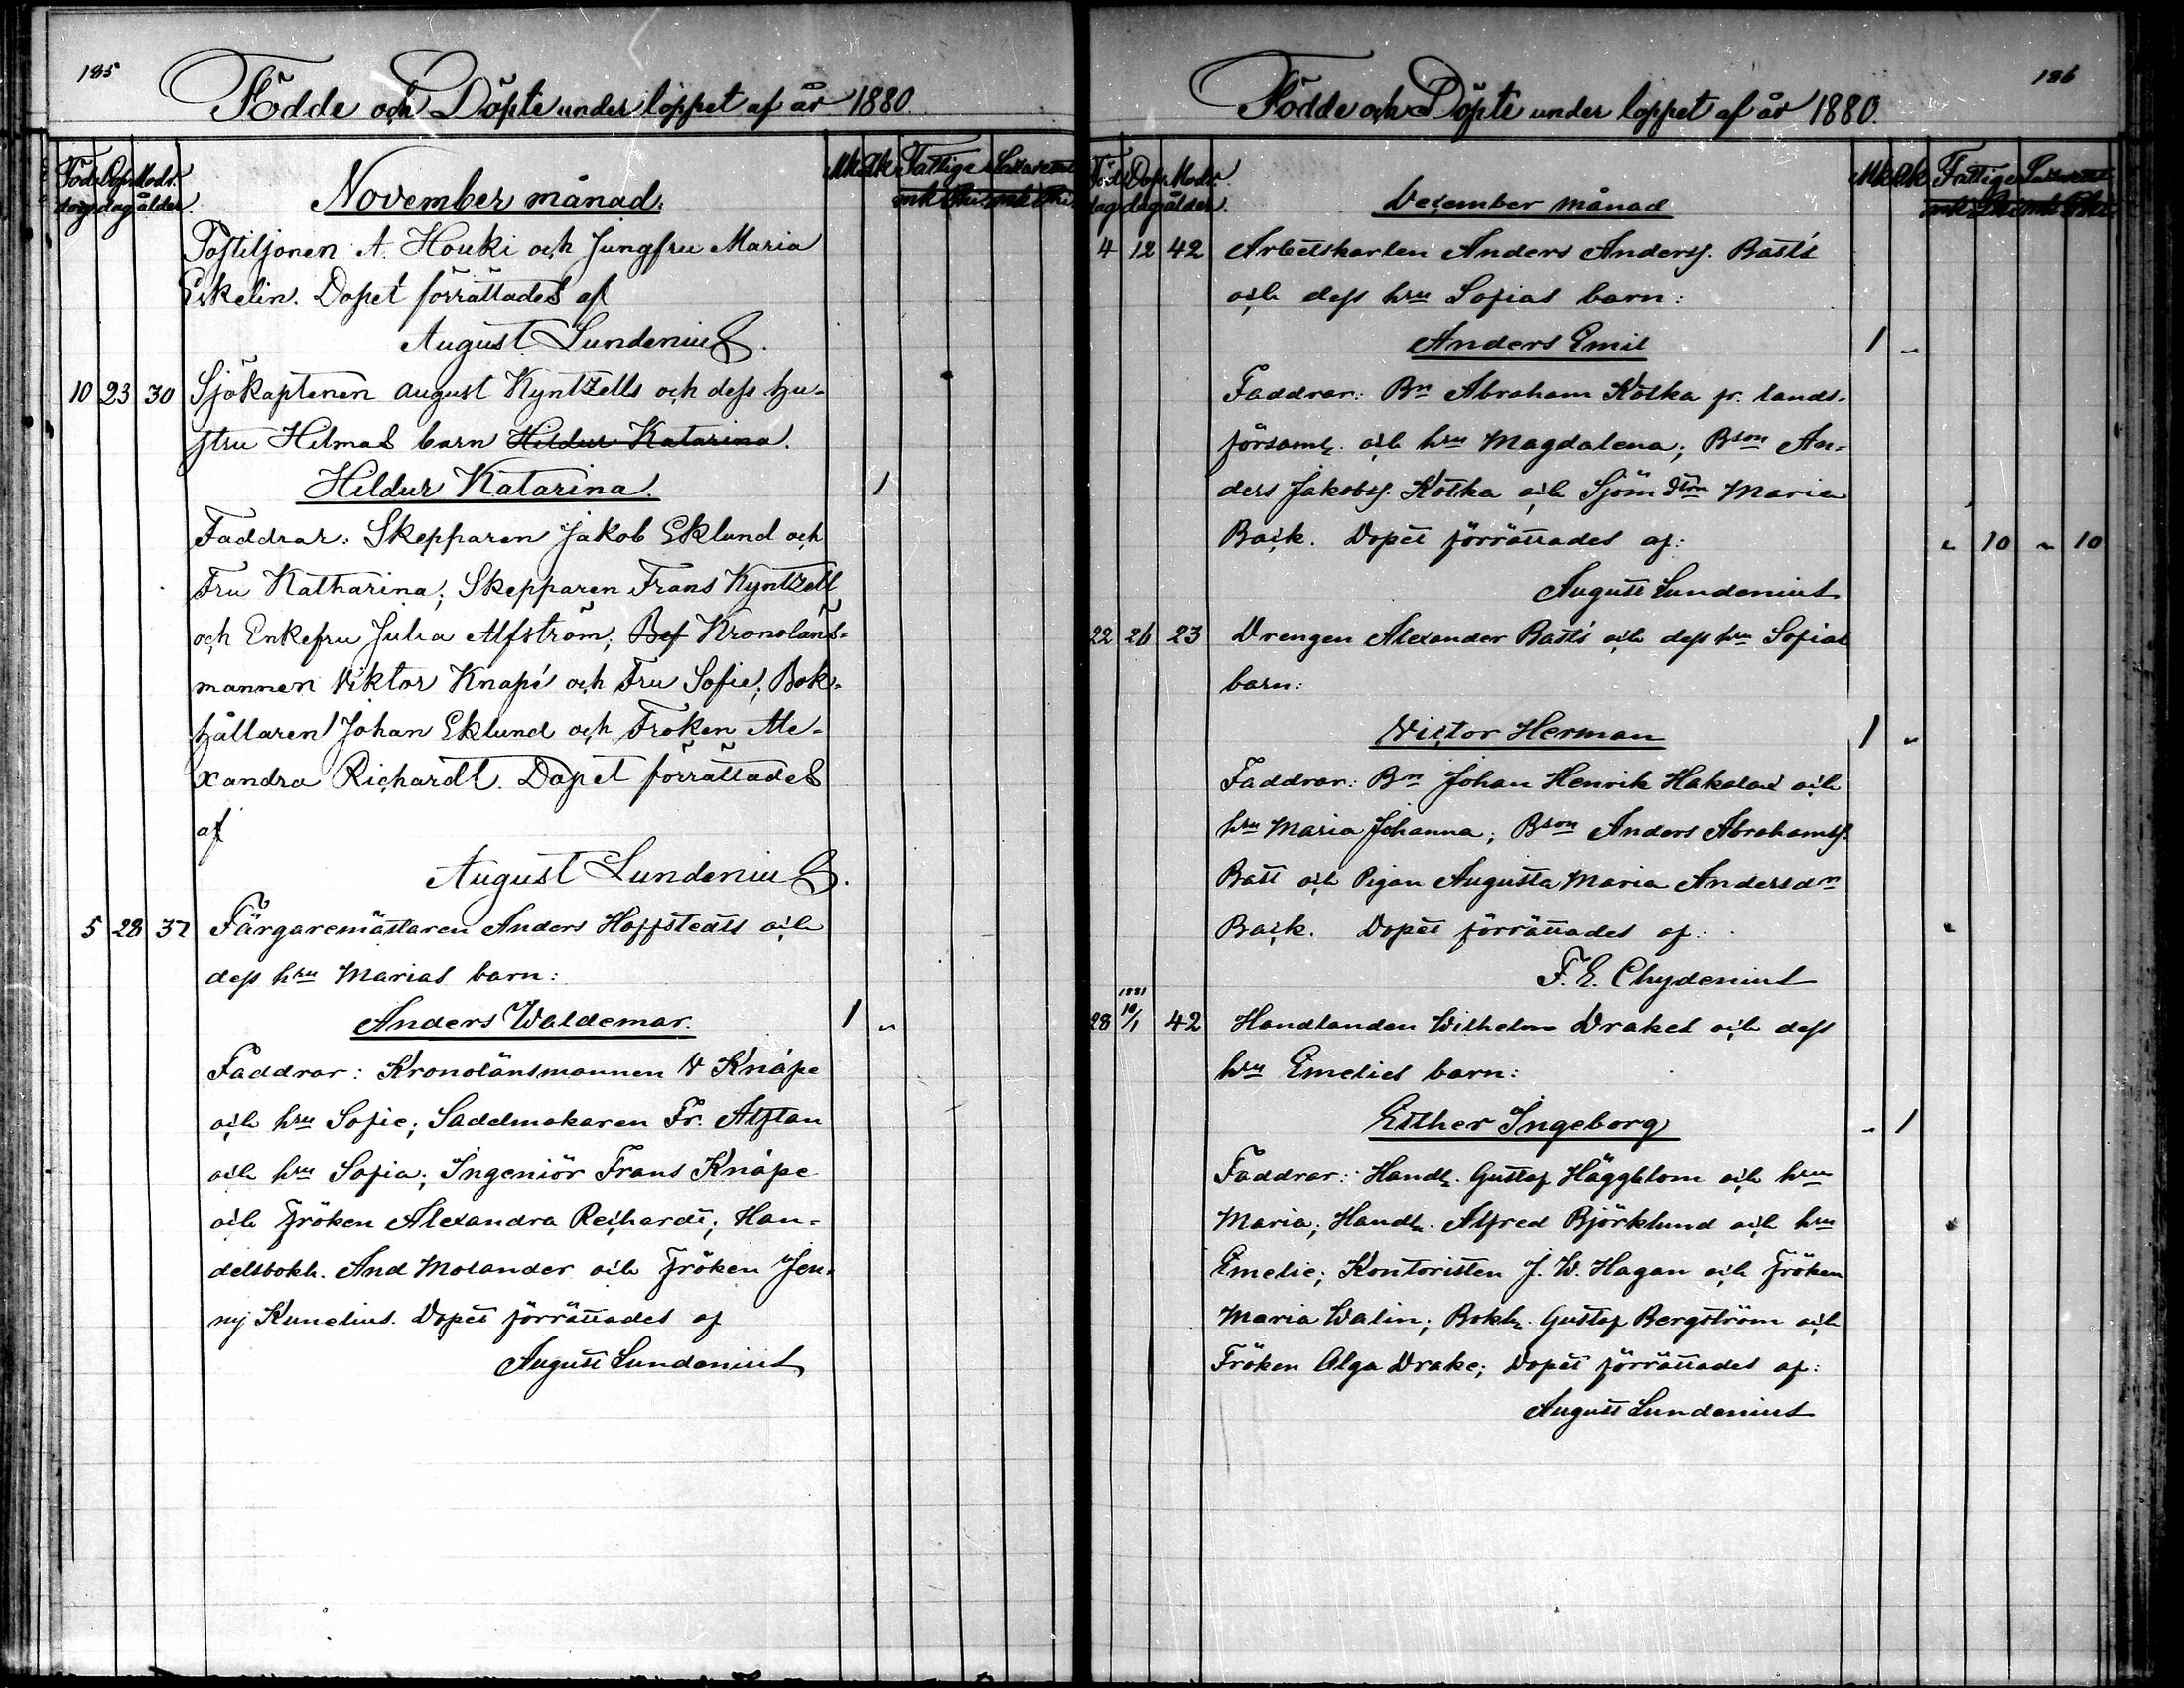 185
Födde och Döpte under loppet af år 1880.
Föd. Dop. Mods. Mk Qk Fattige Lazarett
dag dag ålder. mk Pni mk Pni
November månad.
Postiljonen A. Houki och Jungfru Maria
Eskelin. Dopet förrättades af
August Lundenius.
10 23 30 Sjökaptenen August Kyntzells och dess hu-
stru Hilmas barn Hildur Katarina.
Hildur Katarina. 1
Faddrar: Skepparen Jakob Eklund och
Fru Katharina; Skepparen Frans Kyntzell
och Enkefru Julia Alfström; Bef Kronoläns-
mannen Viktor Knape och Fru Sofie; Bok-
hållaren Johan Eklund och Fröken Ale-
xandra Richardt. Dopet förrättades
af
August Lundenius.
5 28 37 Färgaremästaren Anders Hoffstedts och
dess hru Marias barn:
Anders Waldemar. 1 "
Faddrar: Kronolänsmannen V Knåpe
och hru Sofie; Sadelmakaren Fr. Alftan
och hru Sofia; Ingeniör Frans Knåpe
och Fröken Alexandra Reichardt; Han-
delsbokh. And Molander och Fröken Jen-
ny Kunelius. Dopet förrättades af
August Lundenius
186
Födde och Döpte under loppet af år 1880.
Föd. Dop. Mods. Mk Qk Fattige Lazarett
dag dag ålder. mk Pni mk Pni
December månad
4 12 42 Arbetskarlen Anders Anderss. Basts
och dess hru Sofias barn:
Anders Emil 1 "
Faddrar: Bn Abraham Kotka fr. lands-
församl. och hru Magdalena; Bson An-
ders Jakobss. Kotka och Sjöm dtrn Maria
Back. Dopet förrättades af: " 10 " 10
August Lundenius
22 26 23 Drengen Alexander Basts och dess hru Sofias
barn:
Victor Herman 1 "
Faddrar: Bn Johan Henrik Hakalax och
hru Maria Johanna; Bson Anders Abrahamss.
Bast och Pigan Augusta Maria Andersdr
Back. Dopet förrättades af:
F. E. Chydenius
1881
28 10/1 42 Handlanden Wilhelm Drakes och dess
hru Emelies barn:
Esther Ingeborg " 1
Faddrar: Handl. Gustaf Häggblom och hru
Maria; Handl. Alfred Björklund och hru
Emelie; Kontoristen J. W. Hagan och Fröken
Maria Walin; Bokh. Gustaf Bergström och
Fröken Olga Drake; Dopet förrättades af:
August Lundenius